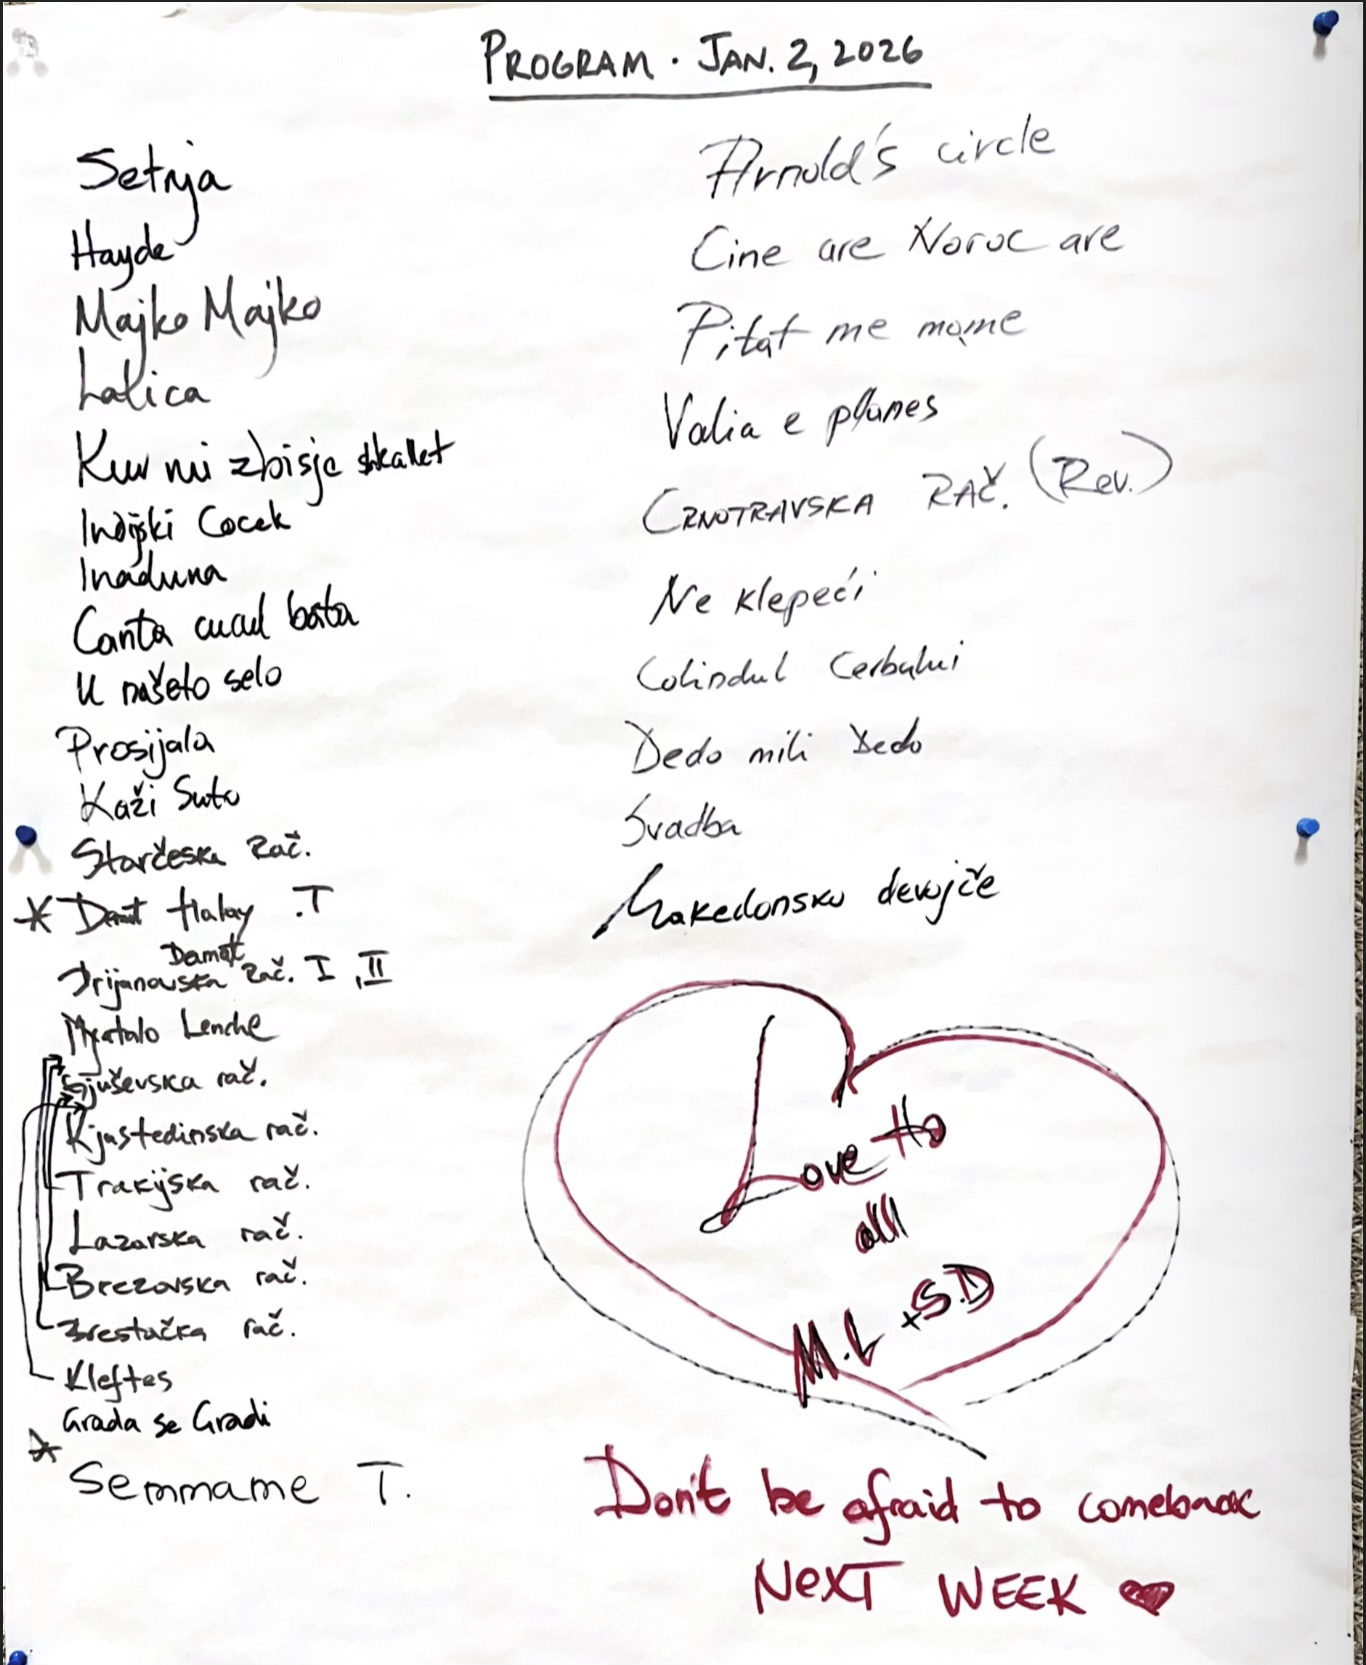 PROGRAM · JAN. 2, 2026
Setnja
Hayde
Majko Majko
Lalica
Kur mi zbisje shkallet
Indijski Cocek
Inaduna
Canta cucul bata
U našeto selo
Prosijala
Kaži Suto
Starčeska Rač.
* Damat Halay .T
Damat
Drijanovska Rač. I, II
Mjatalo Lenche
Gjuševska rač.
Kjustedinska rač.
Trakijska rač.
Lazarska rač.
Brezovska rač.
Brestačka rač.
Kleftes
Grada se Gradi
* Semmame T.
Arnold's circle
Cine are Noroc are
Pitat me mame
Valia e pllanes
CRNOTRAVSKA RAČ. (Rev.)
Ne klepeći
Colindul Cerbului
Dedo mili Dedo
Svadba
Makedonsko devojče
Love to
all
M.L + S.D
Don't be afraid to comeback
NEXT WEEK ♥